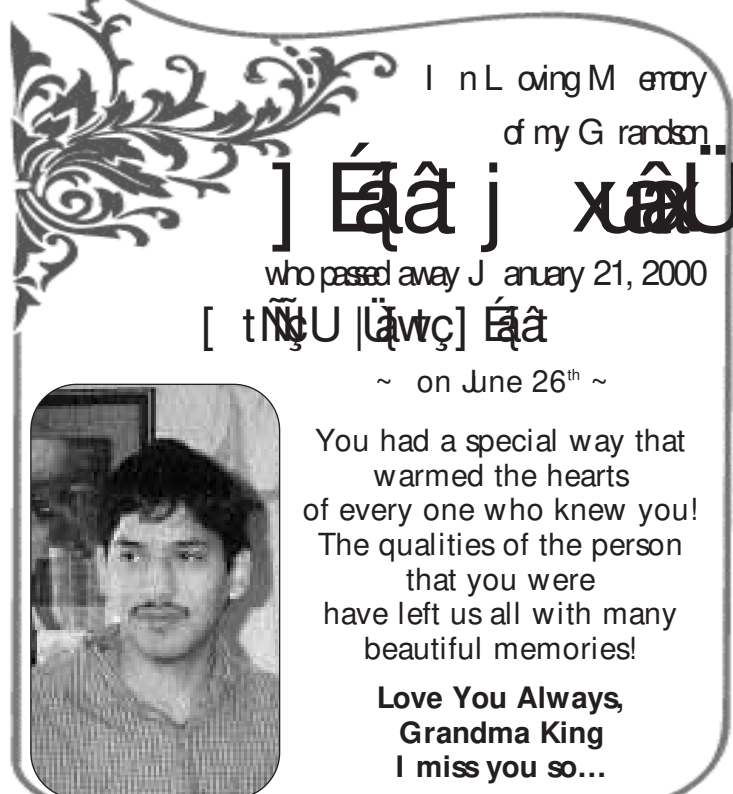 In Loving Memory
of my Grandson
who passed away January 21, 2000
~ on June 26th ~
You had a special way that
warmed the hearts
of every one who knew you!
The qualities of the person
that you were
have left us all with many
beautiful memories!
Love You Always,
Grandma King
I miss you so...